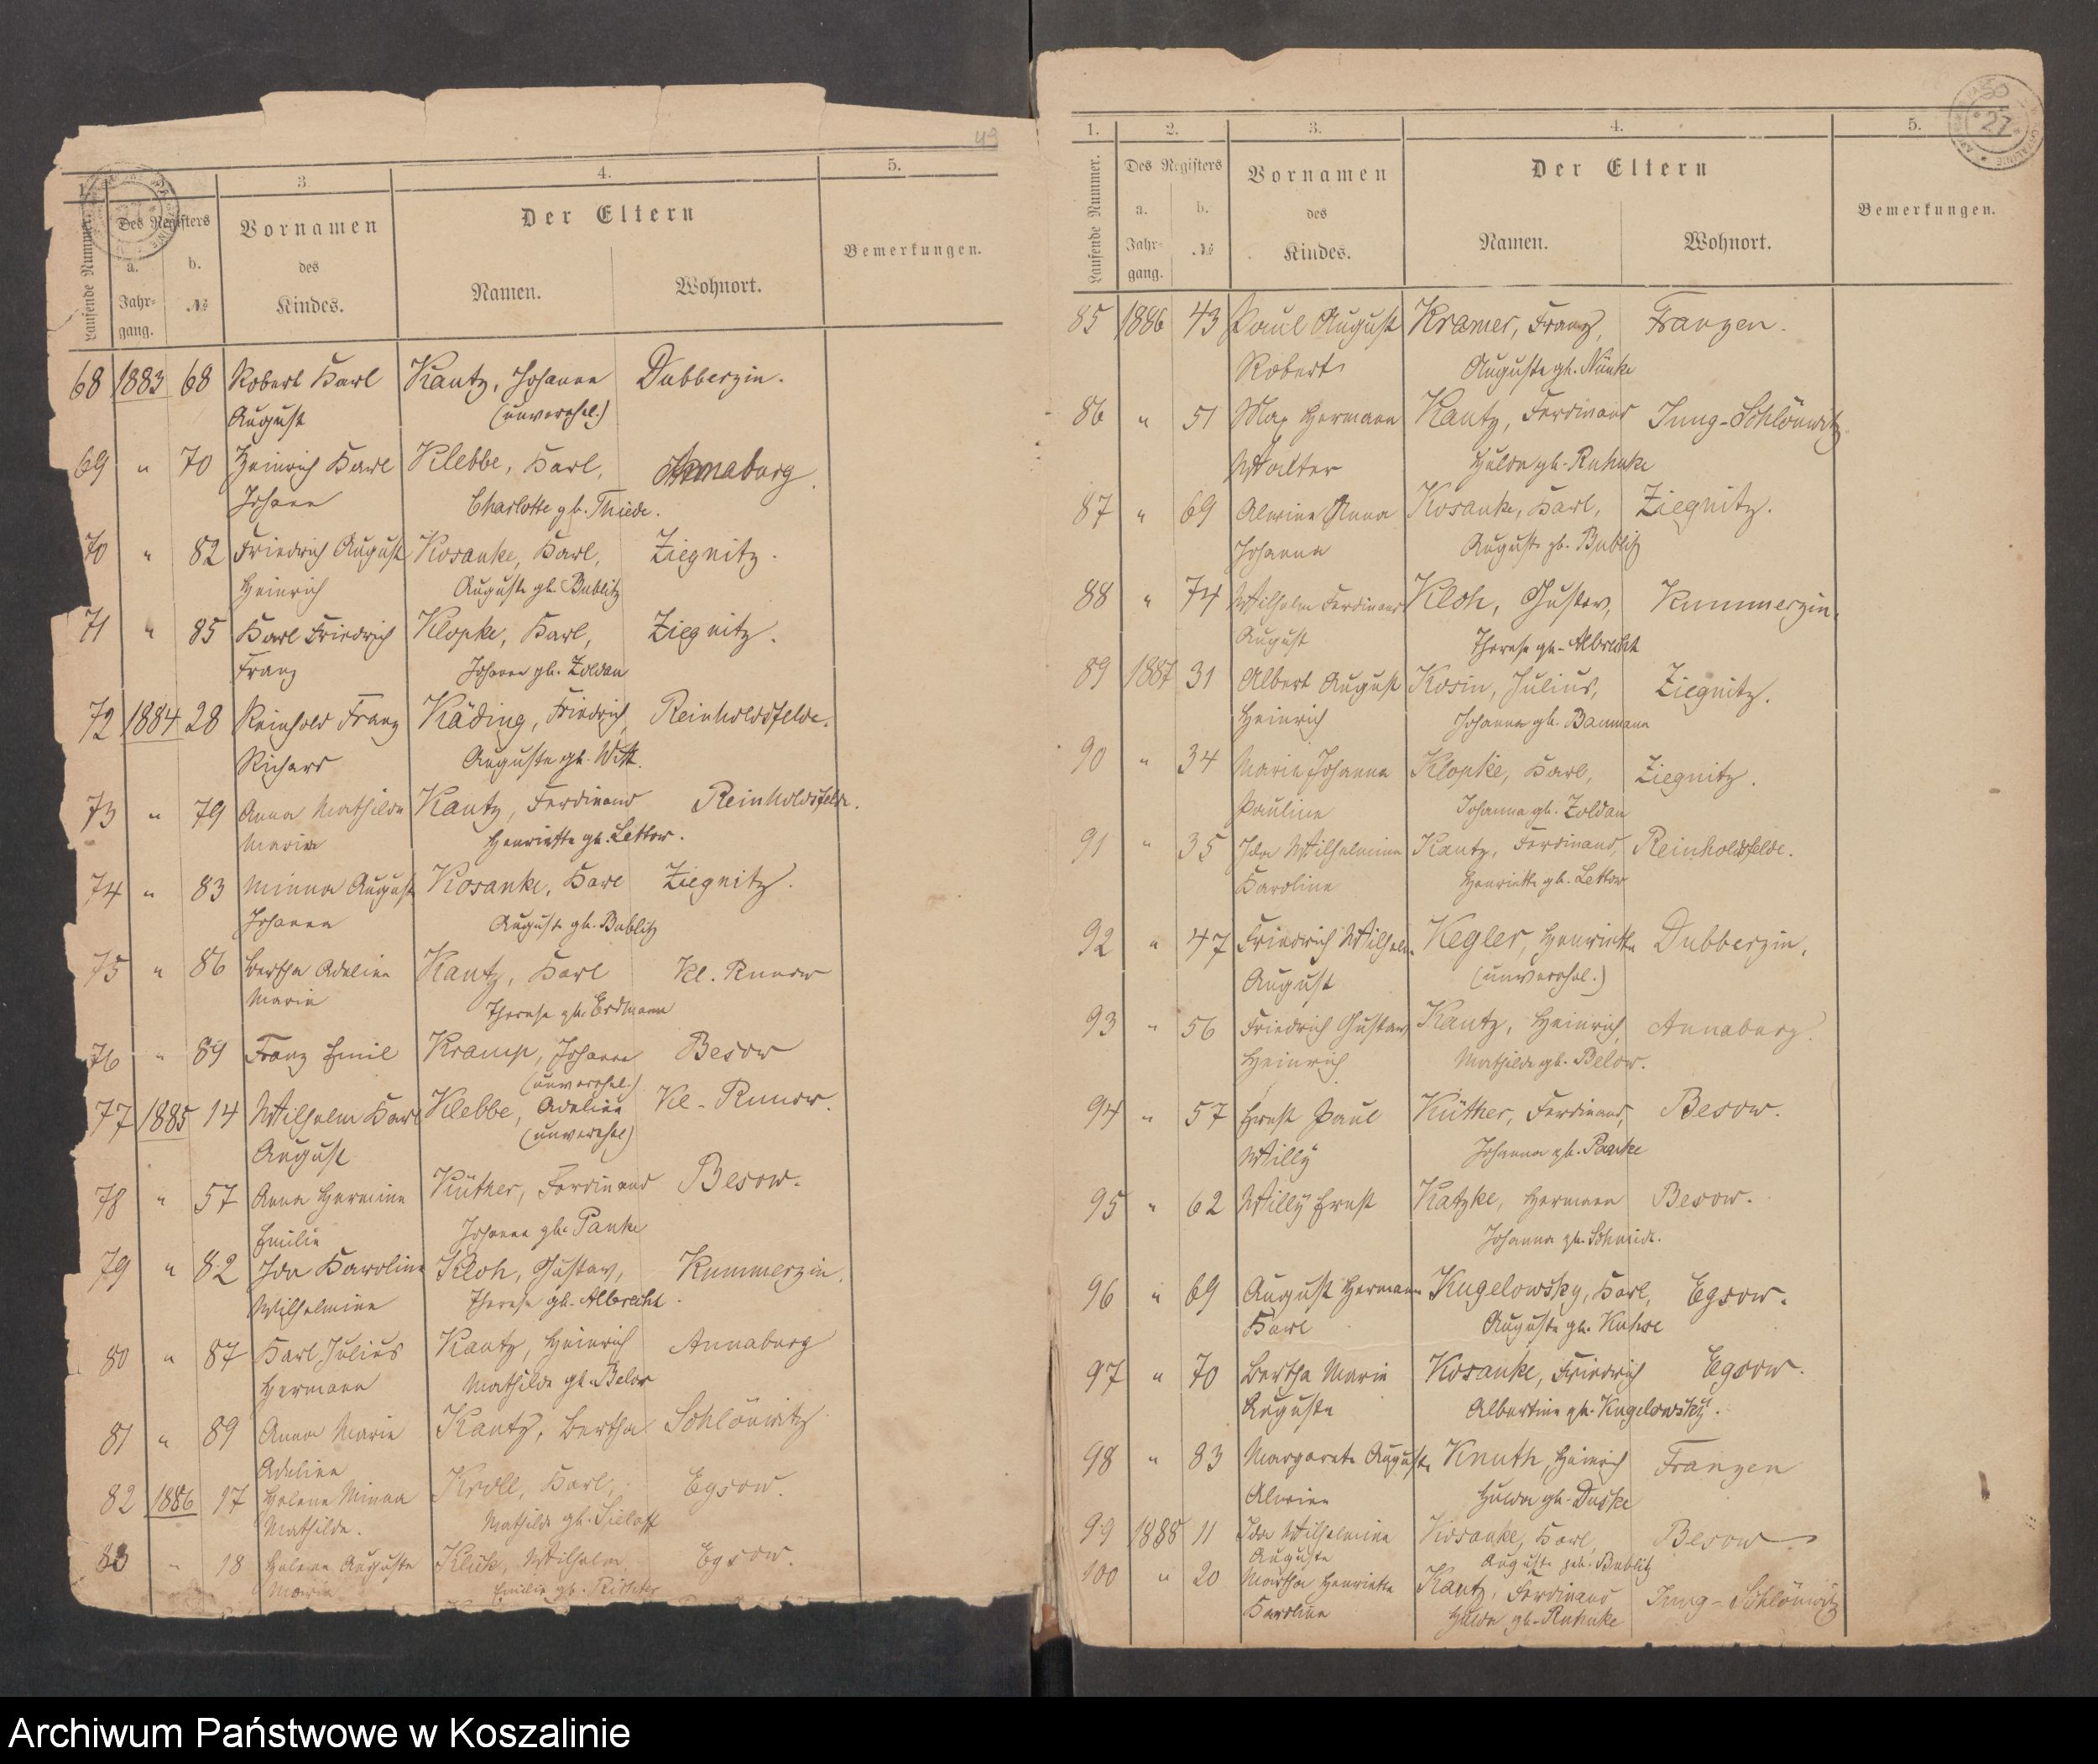 49
1. 3 4. 5.
Laufende Nummer. Des Registers Vornamen Der Eltern Bemerkungen.
a. b. des
Jahr- № Kindes. Namen. Wohnort.
gang.
68 1883 68 Robert Karl Kautz, Johanne Dubberzin.
August (unverehel.)
69 " 70 Heinrich Karl Klebbe, Karl, Annaburg.
Johann Charlotte gb. Thiede.
70 " 82 Friedrich August Kosanke, Karl, Ziegnitz.
Heinrich Auguste gb. Bublitz
71 " 85 Karl Friedrich Klopke, Karl, Ziegnitz.
Franz Johanne gb. Zoldan
72 1884 28 Reinhold Franz Käding, Friedrich Reinholdsfelde.
Richard Auguste gb. Witt.
73 " 79 Anna Mathilde Kautz, Ferdinand Reinholdsfelde.
Marie Henriette gb. Lettow.
74 " 83 Minna Auguste Kosanke, Karl Ziegnitz.
Johanne Auguste gb. Bublitz
75 " 86 Bertha Adeline Kautz, Karl Kl. Runow
Marie Therese gb. Erdmann
76 " 89 Franz Emil Kramp, Johanne Besow
(unverehel.)
77 1885 14 Wilhelm Karl Klebbe, Adeline Kl. Runow.
August (unverehel)
78 " 57 Anna Hermine Küther, Ferdinand Besow.
Emilie Johanne gb. Panke
79 " 82 Ida Karoline Kloh, Gustav, Kummerzin.
Wilhelmine Therese gb. Albrecht.
80 " 87 Karl Julius Kautz, Heinrich Annaburg
Hermann Mathilde gb. Below
81 " 89 Anna Marie Kautz, Bertha Schlönwitz
Adeline
82 1886 17 Helene Minna Kroll, Karl, Egsow.
Mathilde. Mathilde gb. Sieloff
83 " 18 Helene Auguste Klick, Wilhelm Egsow.
Marie Emilie gb. Richter
50
27
1. 2. 3. 4. 5.
Laufende Nummer. Des Registers Vornamen Der Eltern Bemerkungen.
a. b. des
Jahr- № Kindes. Namen. Wohnort.
gang.
85 1886 43 Paul August Kramer, Franz, Franzen.
Robert Auguste gb. Nünke
86 " 51 Max Hermann Kautz, Ferdinand Jung-Schlönwitz
Walter Hulda gb. Ruhnke
87 " 69 Alwine Anna Kosanke, Karl, Ziegnitz.
Johanna Auguste gb. Bublitz
88 " 74 Wilhelm Ferdinand Kloh, Gustav, Kummerzin.
August Therese gb. Albrecht
89 1887 31 Albert August Kosin, Julius, Ziegnitz.
Heinrich Johanna gb. Baumann
90 " 34 Marie Johanna Klopke, Karl, Ziegnitz.
Pauline Johanna gb. Zoldan
91 " 35 Ida Wilhelmine Kautz, Ferdinand, Reinholdsfelde.
Karoline Henriette gb. Lettow
92 " 47 Friedrich Wilhelm Kegler, Henriette Dubberzin.
August (unverehel.)
93 " 56 Friedrich Gustav Kautz, Heinrich, Annaburg.
Heinrich Mathilde gb. Below.
94 " 57 Ernst Paul Küther, Ferdinand, Besow.
Willy Johanna gb. Paanke
95 " 62 Willy Ernst Katzke, Hermann Besow.
Johanna gb. Schmidt.
96 " 69 August Hermann Kugelowsky, Karl, Egsow.
Karl Auguste gb. Kuhse
97 " 70 Bertha Marie Kosanke, Friedrich Egsow.
Auguste Albertine gb. Kugelowsky.
98 " 83 Margarete Auguste Knuth, Heinrich Franzen
Alwine Hulda gb. Duske
99 1888 11 Ida Wilhelmine Kosanke, Karl, Besow
Auguste Auguste geb. Bublitz
100 " 20 Martha Henriette Kautz, Ferdinand Jung-Schlönwitz
Karoline Hulda gb. Ruhnke
Archiwum Państwowe w Koszalinie